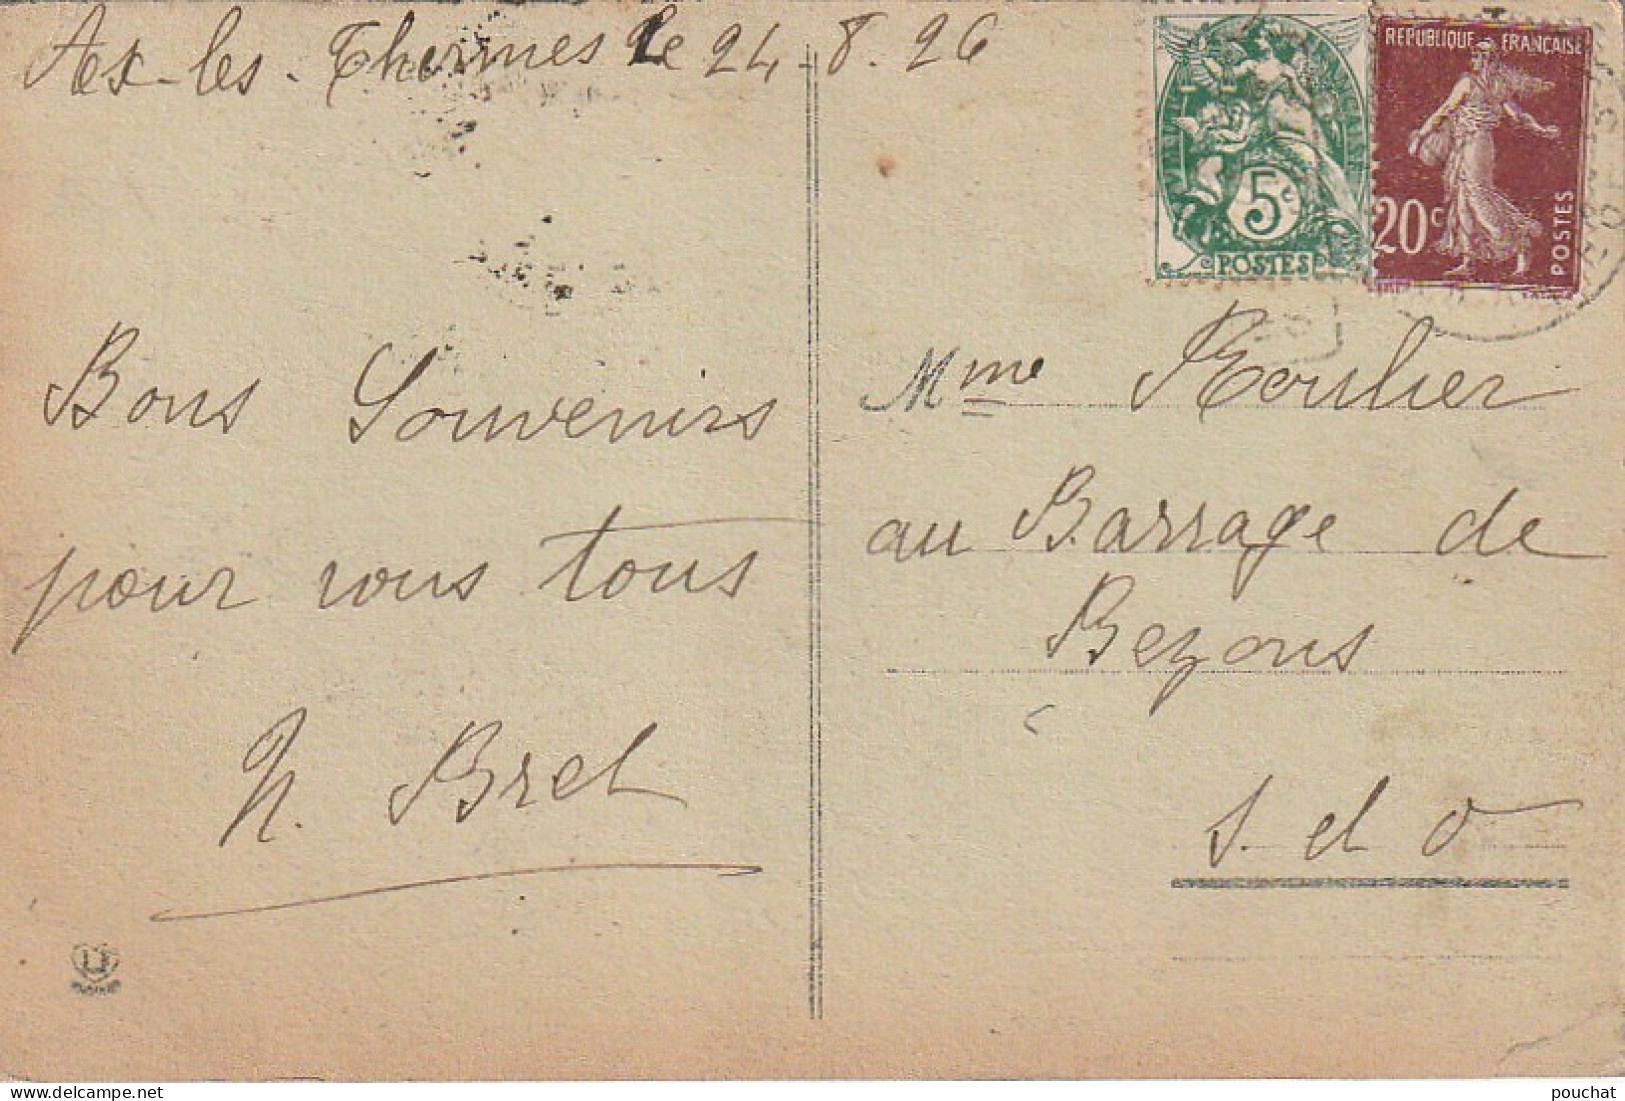 Ax-les-Thermes le 24-8.26
Bons Souvenirs
pour vous tous
N. Brel
RÉPUBLIQUE FRANÇAISE
5c
POSTES
20c
POSTES
Mme Roulier
au Barrage de
Bezons
S. et O
pouchat